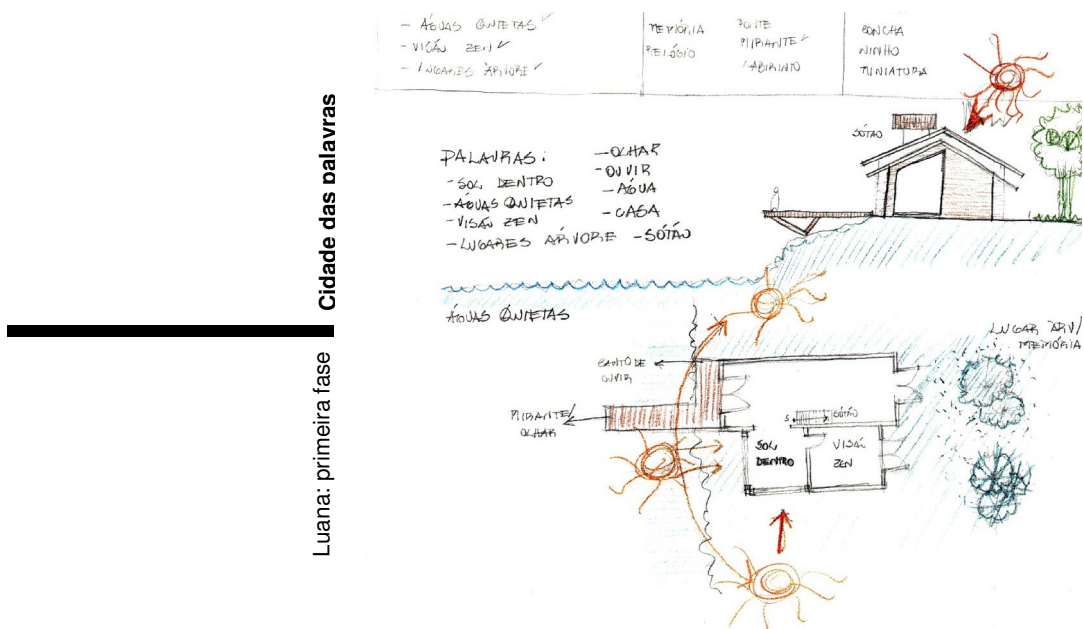 Cidade das palavras
Luana: primeira fase
- ÁGUAS QUIETAS
- VISÃO ZEN
- LUGARES ÁRVORE
MEMÓRIA
RELÓGIO
PONTE
MIRANTE
LABIRINTO
CONCHA
NINHO
MINIATURA
SÓTÃO
PALAVRAS:
- SOL DENTRO
- ÁGUAS QUIETAS
- VISÃO ZEN
- LUGARES ÁRVORE
- OLHAR
- OUVIR
- ÁGUA
- CASA
- SÓTÃO
ÁGUAS QUIETAS
LUGAR ARV/
MEMÓRIA
CANTO DE
OUVIR
MIRANTE/
OLHAR
S
SÓTÃO
SOL
DENTRO
VISÃO
ZEN